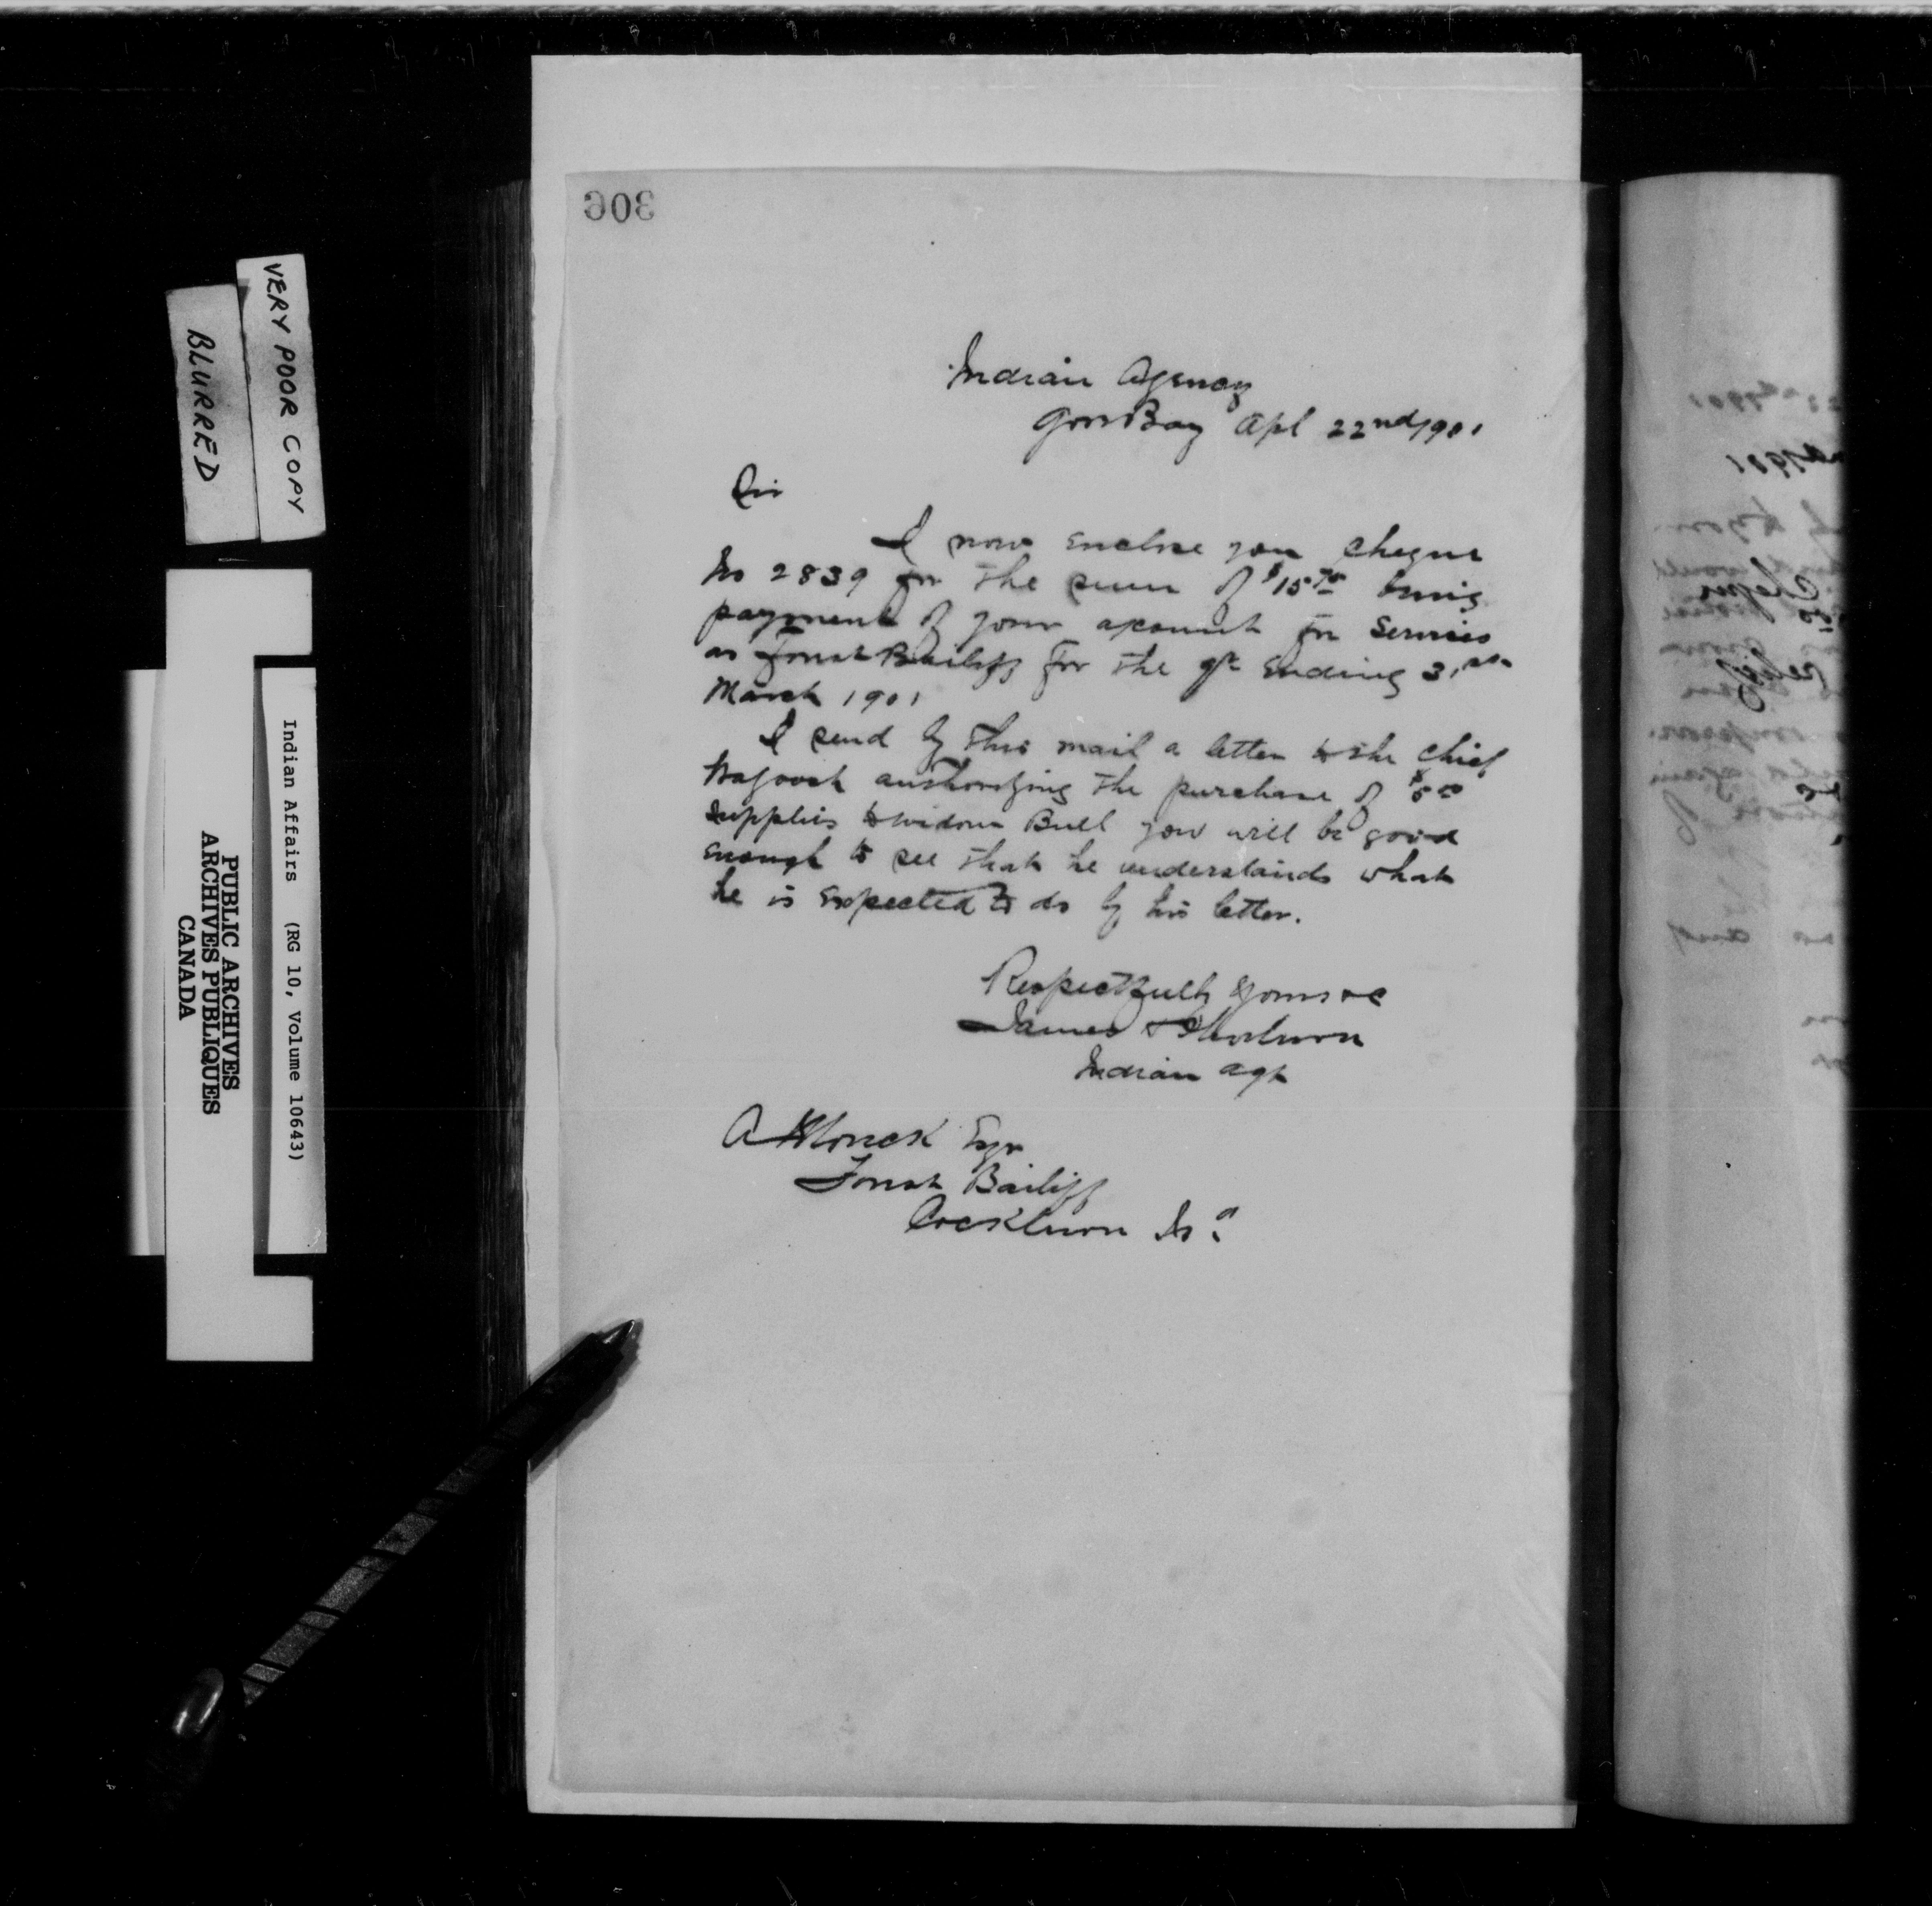 306
Indian Agency
Gore Bay Apl 22nd/901
Sir
I now enclose you cheque
No 2839 for the sum of $15 75 being
payment of your account for Services
as Forest Bailiff for the qr ending 31st
March 1901
I send by this mail a letter to the Chief
authorizing the purchase of $5 00
Supplies to widow Bull you will be good
enough to see that he understands what
he is expected to do by his letter.
Respectfully yours &c
James Thorburn
Indian Agt
A Monck Esqr
Forest Bailiff
Cockburn Isd
VERY POOR COPY
BLURRED
Indian Affairs (RG 10, Volume 10643)
PUBLIC ARCHIVES
ARCHIVES PUBLIQUES
CANADA